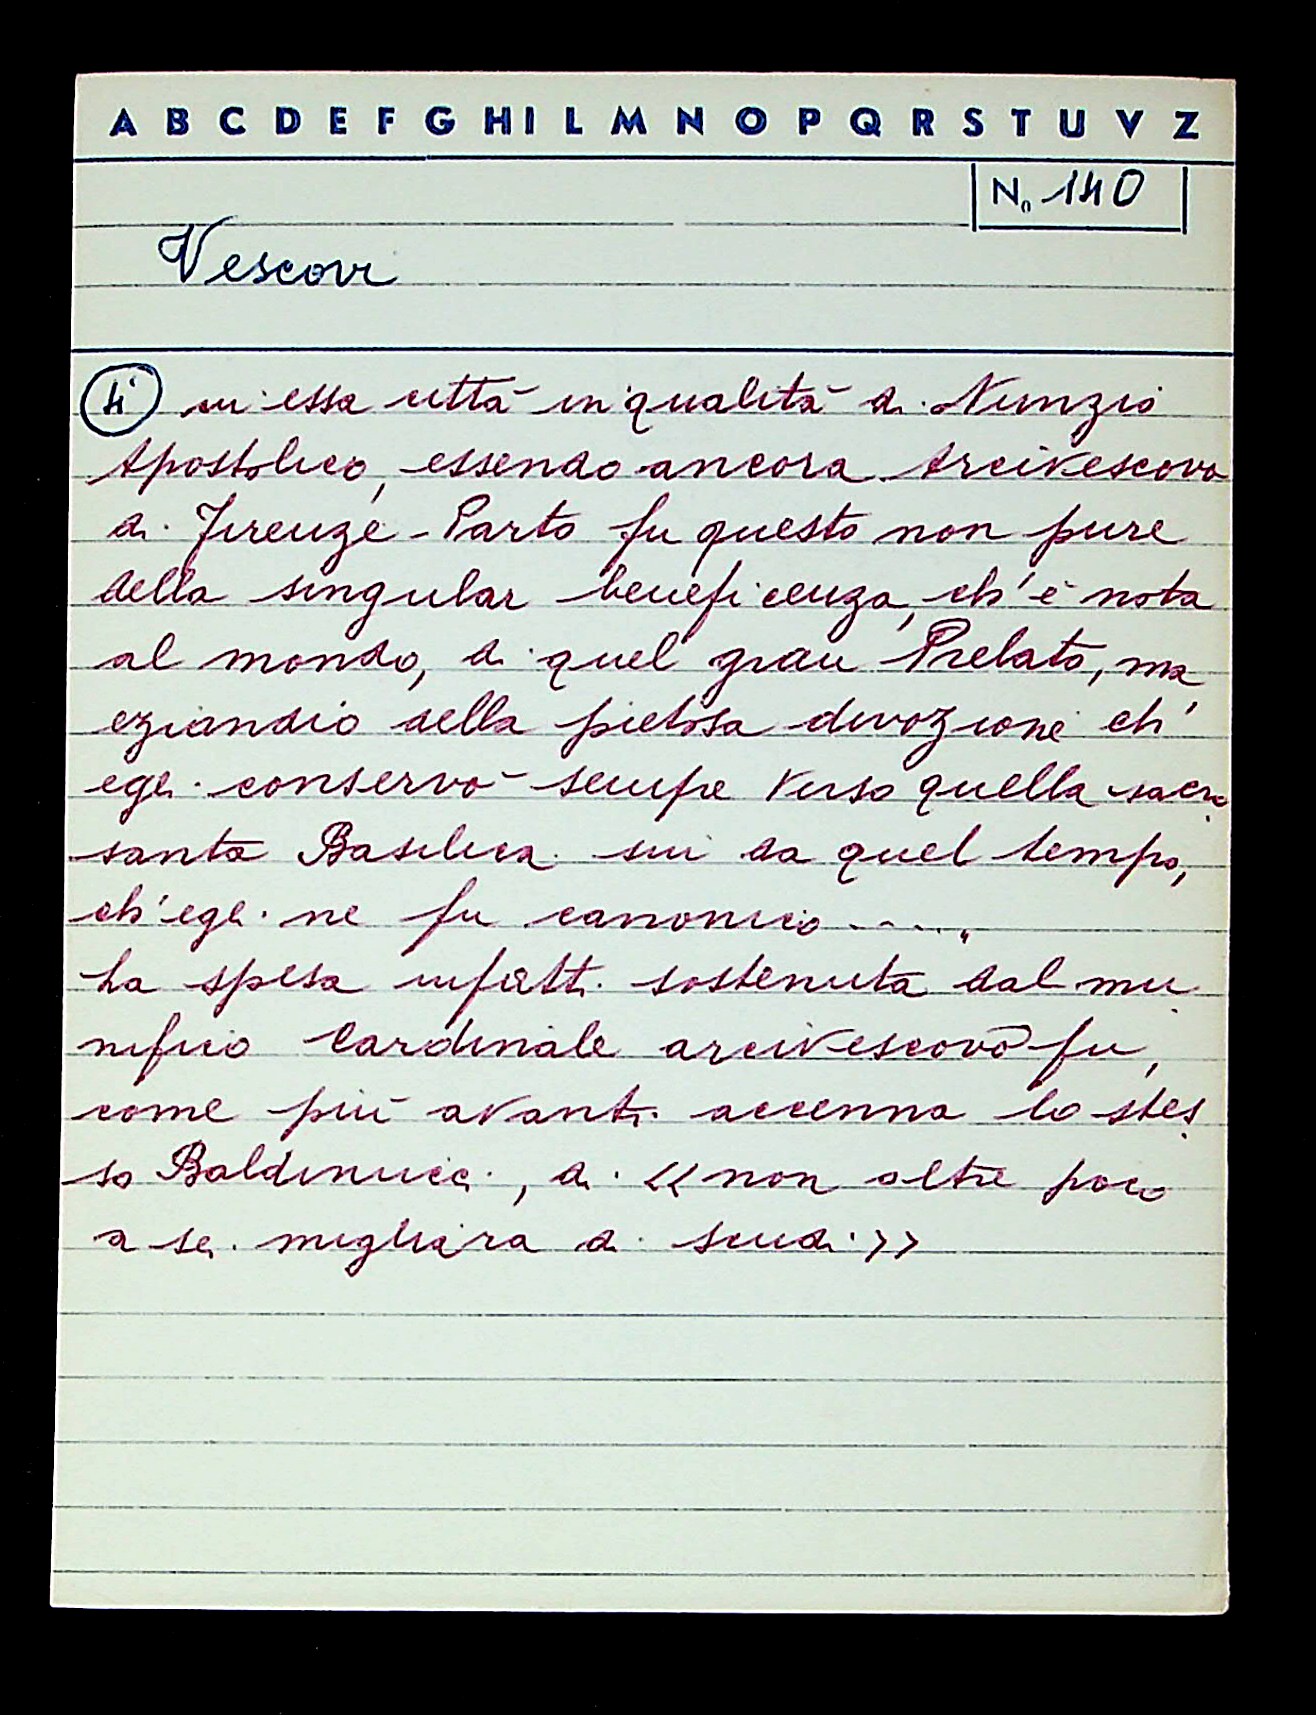 A B C D E F G H I L M N O P Q R S T U V Z
No 140
Vescovi
4) in essa città in qualità di Nunzio
Apostolico, essendo ancora Arcivescovo
di Firenze - Parto fu questo non pure
della singular beneficenza, ch'è nota
al mondo, di quel gran Prelato, ma
eziandio della pietosa divozione ch'
egli conservò sempre verso quella sacro
santa Basilica sin da quel tempo,
ch'egli ne fu canonico ....„
La spesa infatti sostenuta dal mu
nifico Cardinale arcivescovo fu,
come più avanti accenna lo stes
so Baldinucci, di << non oltre poco
a sei migliara di scudi >>